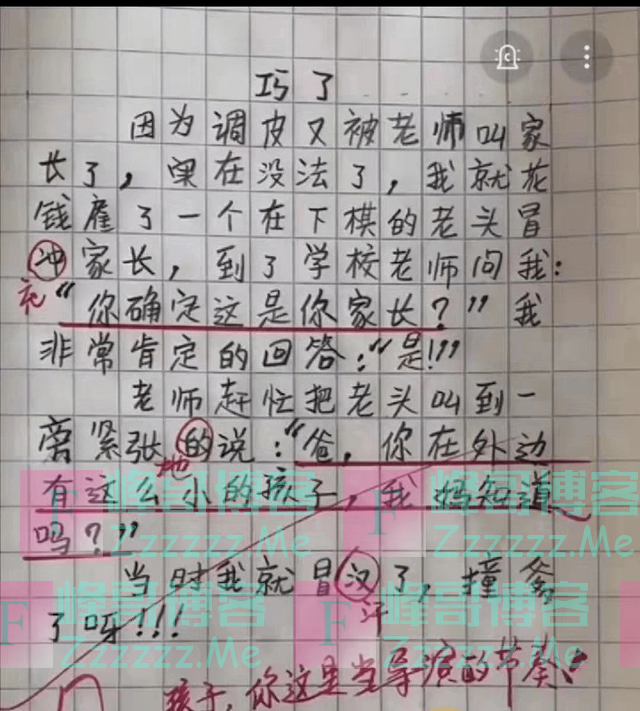 巧了
因为调皮又被老师叫家
长了，实在没法了，我就花
钱雇了一个在下棋的老头冒
冲家长，到了学校老师问我：
充
“你确定这是你家长？”我
非常肯定的回答：“是！”
老师赶忙把老头叫到一
旁紧张的说：“爸，你在外边
地
有这么小的孩子，我妈知道
吗？”
当时我就冒汉了，撞爹
汗
了呀!!!
孩子，你这是当导演的节奏！
F 峰哥博客
Zzzzzz.Me
F 峰哥博客
Zzzzzz.Me
F 峰哥博客
Zzzzzz.Me
F 峰哥博客
Zzzzzz.Me